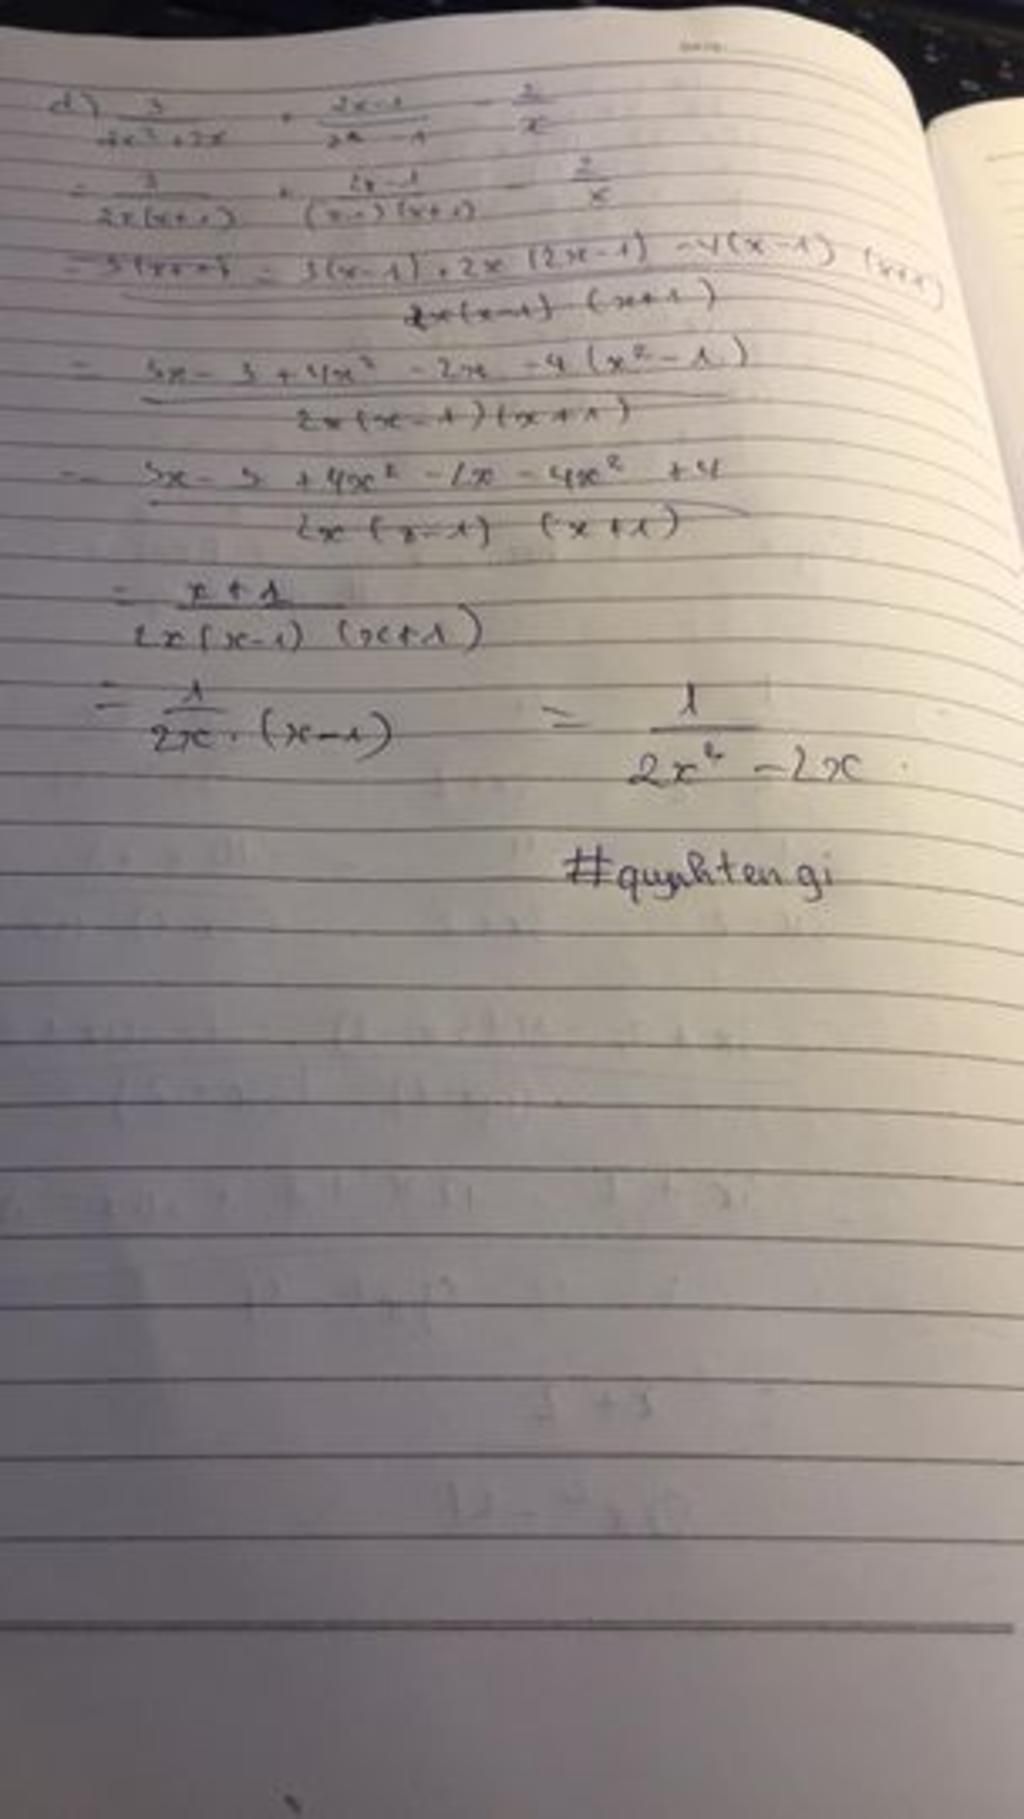 d) 3/(2x² + 2x) + (2x-1)/(x² - 1) - 2/x
= 3/(2x(x+1)) + (2x-1)/((x-1)(x+1)) - 2/x
= 3(x-1) + 2x(2x-1) - 4(x-1)(x+1) / 2x(x-1)(x+1)
= 3x - 3 + 4x² - 2x - 4(x² - 1) / 2x(x-1)(x+1)
= 3x - 3 + 4x² - 2x - 4x² + 4 / 2x(x-1)(x+1)
= x + 1 / 2x(x-1)(x+1)
= 1 / 2x.(x-1) = 1 / 2x² - 2x.
#quynhtengi